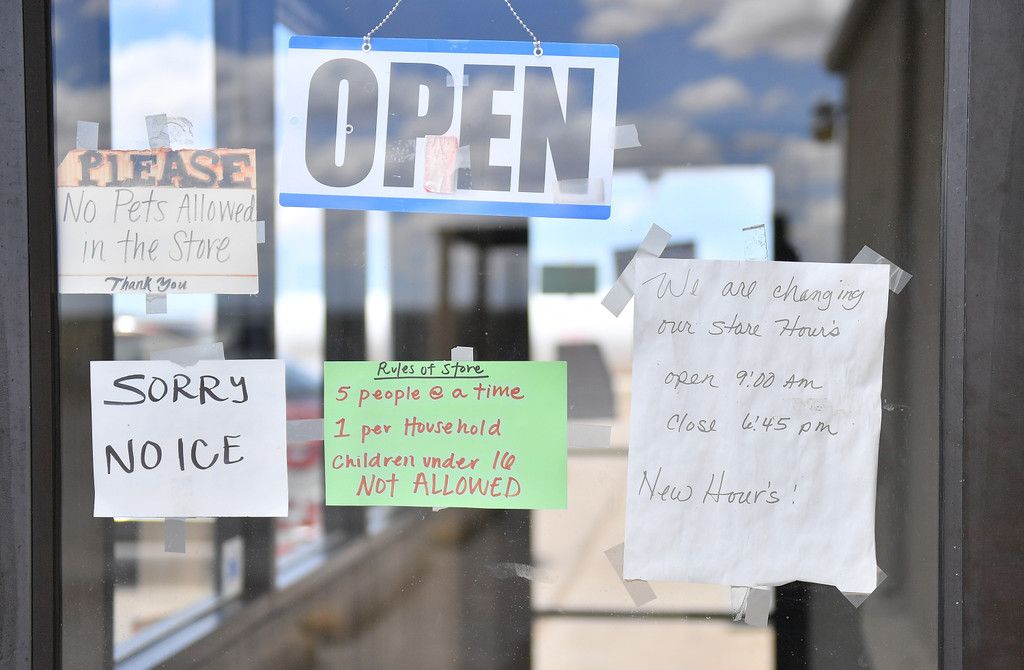 OPEN
PLEASE
No Pets Allowed
in the Store
Thank You
SORRY
NO ICE
Rules of Store
5 people @ a time
1 per Household
Children under 16
NOT ALLOWED
We are changing
our Store Hour's
open 9:00 Am
Close 6:45 pm
New Hour's!